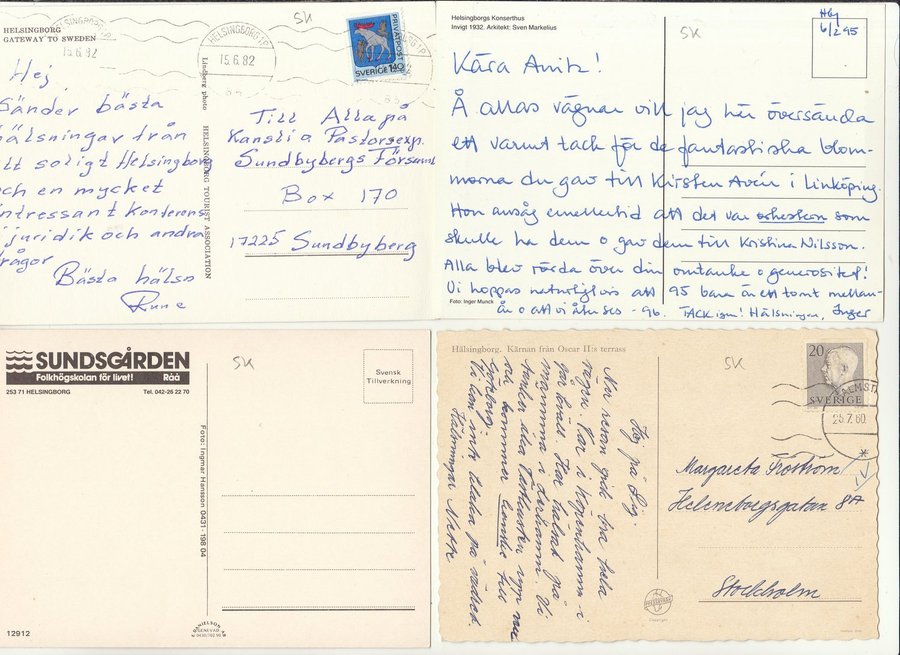 HELSINGBORG
GATEWAY TO SWEDEN
HELSINGBORG
15.6.82
HELSINGBORG
15.6.82
SK
PRIVATPOST
SVERIGE 140
Hej
Sänder bästa
hälsningar från
ett soligt Helsingborg
och en mycket
intressant konferens
i juridik och andra
frågor
Bästa hälsn
Rune
Lindberg photo HELSINGBORG TOURIST ASSOCIATION
Till Alla på
Kanslia Pastorsexp.
Sundbybergs Församl
Box 170
17225 Sundbyberg
Helsingborgs Konserthus
Invigt 1932. Arkitekt: Sven Markelius
SK
Hbg
6/2 95
Kära Anita!
Å allas vägnar vill jag här översända
ett varmt tack för de fantastiska blom-
morna du gav till Kirsten Avér i Linköping.
Hon ansåg emellertid att det var orkestern som
skulle ha dem o gav dem till Kristina Nilsson.
Alla blev rörda över din omtanke o generositet!
Vi hoppas naturligtvis att 95 bara är ett tomt mellan-
år o att vi återses - 96. TACK igen! Hälsningar, Inger
Foto: Inger Munck
SUNDSGÅRDEN
Folkhögskolan för livet! Råå
253 71 HELSINGBORG Tel. 042-26 22 70
SK
Svensk
Tillverkning
Foto: Ingmar Hansson 0431-198 04
12912
Hälsingborg. Kärnan från Oscar II:s terrass
SK
20
SVERIGE
HALMSTAD
25.7.60
Hej på Dig.
Mer resan gick bra hela
vägen. Var i Köpenhamn i
går kväll. Har hälsat på
mamma i
tänker
och kommer kanske till
Göteborg.
Hälsningar
Margareta Froström
Heleneborgsgatan 8A
Stockholm